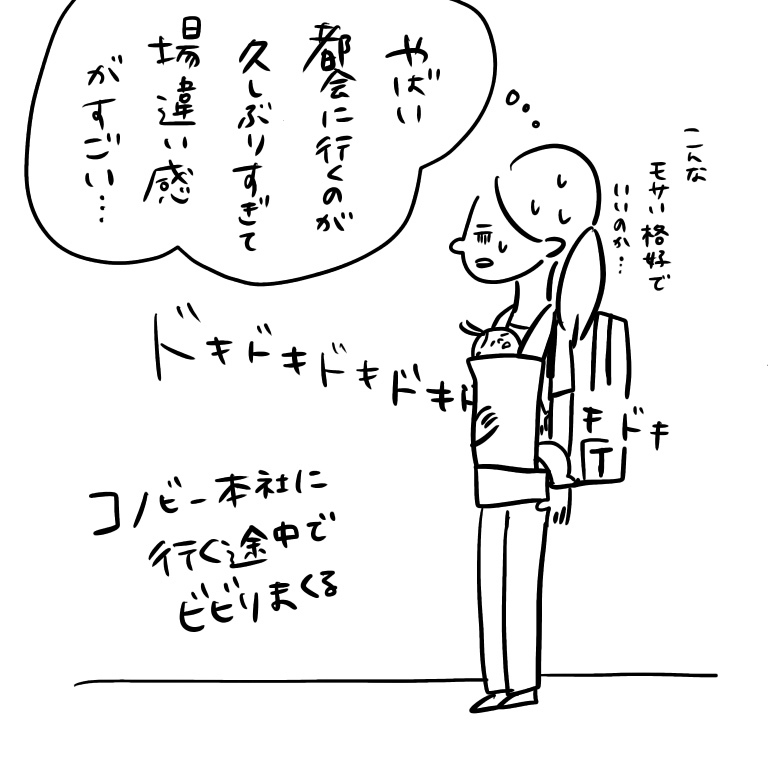 やばい
都会に行くのが
久しぶりすぎて
場違い感
がすごい…
こんな
モサい格好で
いいのか…
ドキドキドキドキド
キドキ
T
コノビー本社に
行く途中で
ビビりまくる